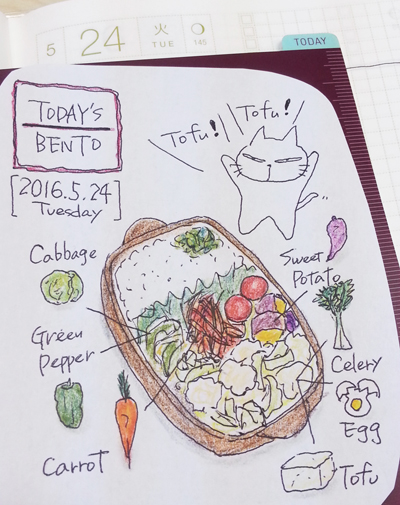 5 24 火 TUE 145
TODAY
TODAY'S
BENTO
[2016.5.24]
Tuesday
Tofu! Tofu!
Cabbage
Sweet
Potato
Green
Pepper
Celery
Egg
Carrot
Tofu